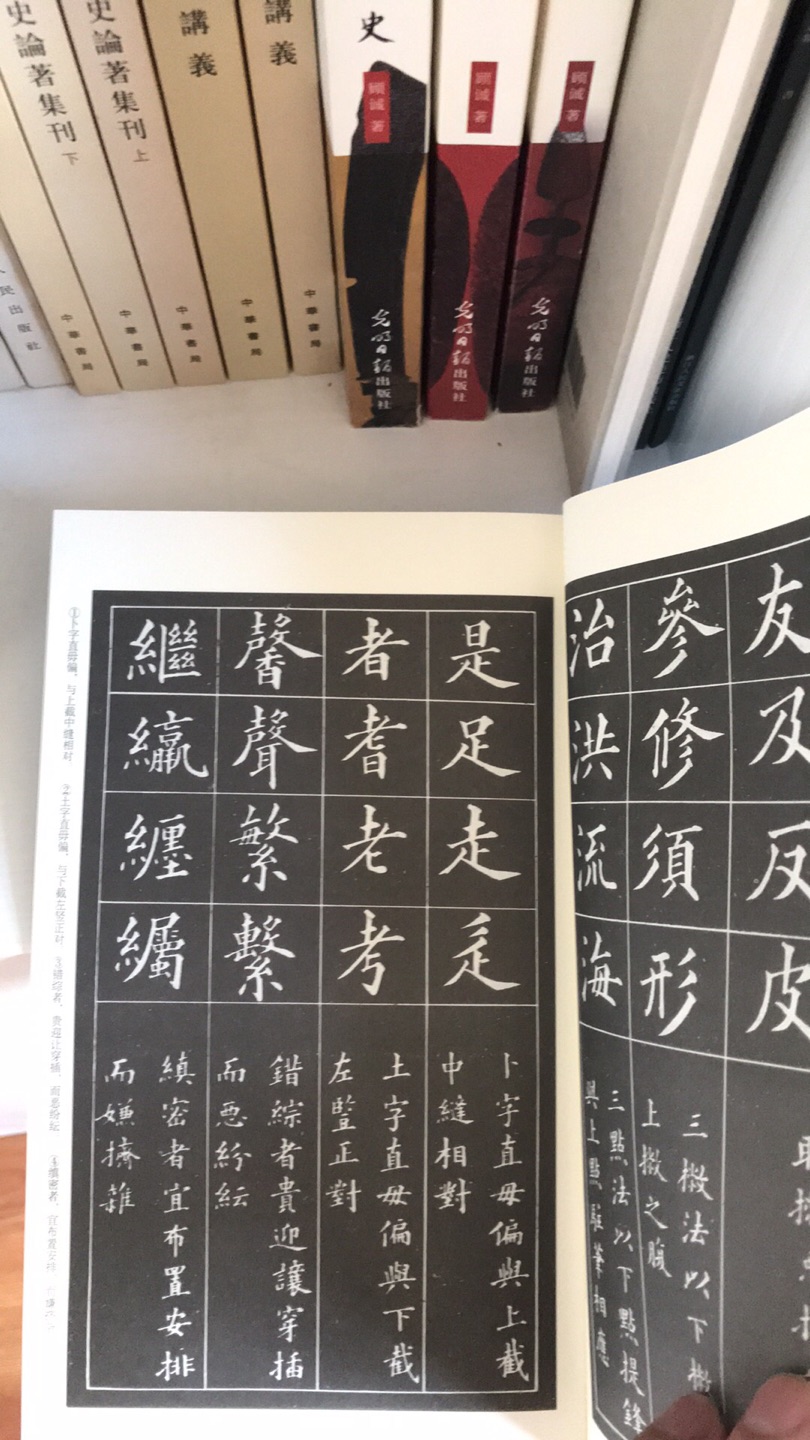 史論著集刊 下
史論著集刊 上
講義
講義
史
顾诚 著
顾诚 著
顾诚 著
民出版社
中華書局
中華書局
中華書局
中華書局
中華書局
光明日报出版社
光明日报出版社
光明日报出版社
友及反皮
參修須形
治洪流海
三撇法以下撇
上撇之腹
三點法以下點提鋒
與上點駐筆相應
是足走辵
者耆老考
馨聲繁繫
繼纚纏纊
卜字直毋偏與上截
中縫相對
土字直毋偏與下截
左豎正對
錯綜者貴迎讓穿插
而惡紛紜
縝密者宜布置安排
而嫌擠雜
①卜字直毋偏，与上截中缝相对。
②土字直毋偏，与下截左竖正对。
③错综者，贵迎让穿插，而恶纷纭
④缜密者，宜布置安排